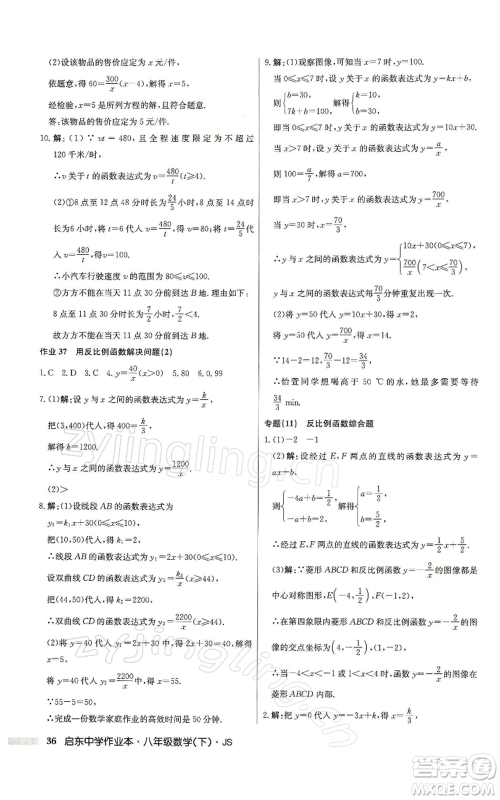 (2)设该物品的售价应为x元/件,
依题意,得60=300/x(x-4),解得x=5.
经检验,x=5是所列方程的解.
答:该物品的售价应为5元/件.
10.解:(1)∵vt=480,且全程速度限定为不超过
120千米/时,
∴v关于t的函数表达式为v=480/t(t≥4).
(2)①8点至12点48分时长为24/5小时,8点至14点
时长为6小时,将t=6代入v=480/t,得v=80;将t=24/5
代入v=480/t,得v=100.
∴小汽车行驶速度v的范围为80≤v≤100.
②方方不能在当天11点30分前到达B地.理由如下:
8点至11点30分时长为7/2小时,将t=7/2代入v=
480/t,得v=960/7>120.
故方方不能在当天11点30分前到达B地.
作业37 用反比例函数解决问题(2)
1.C 2.D 3.C 4.y=40/x(x>0) 5.80 6.0.99
7.(1)解:设y与x之间的函数表达式为y=k/x,
把(3,400)代入,得400=k/3,
解得k=1200.
∴y与x之间的函数表达式为y=1200/x.
(2)>
8.解:(1)设线段AB的函数表达式为
y₁=k₁x+30(0≤x≤10),
把(10,50)代入,得50=10k₁+30,解得k₁=2,
∴线段AB的函数表达式为y₁=2x+30(0≤x≤10).
设双曲线CD的函数表达式为y₂=k₂/x(44≤x≤60),
把(44,50)代入,得50=k₂/44,解得k₂=2200,
∴双曲线CD的函数表达式为y₂=2200/x(44≤x≤60).
(2)将y=40代入y₁=2x+30,得2x+30=40,解得x=5,
将y=40代入y₂=2200/x,得x=55.
∵55-5=50,
∴一份数学家庭作业的高效时间是50分钟.
9.解:(1)观察图像,可得
当0≤x≤7时,设y关于x的函数表达式为y=kx+b,
则{b=30, 7k+b=100, 解得{k=10, b=30.
即当0≤x≤7时,y关于x的函数表达式为y=10x+30.
当x>7时,设y=a/x,
则100=a/7,解得a=700,
即当x>7时,y关于x的函数表达式为y=700/x,
当y=30时,x=70/3,
∴y与x之间的函数表达式为y={10x+30(0≤x≤7), 700/x(7<x≤70/3).
(2)将y=50代入y=10x+30,得x=2,
将y=50代入y=700/x,得x=14,
∵14-2=12,70/3-12=34/3,
∴怡萱同学想喝高于50 ℃的水,最多需要等待
34/3 min.
专题(11) 反比例函数综合题
1.(1)-2 -1
(2)解:设经过E,F两点的直线的函数表达式为y=
ax+b,
则{-4a+b=1/2, -a+b=2, 解得{a=1/2, b=5/2.
∴经过E,F两点的直线的函数表达式为y=1/2x+5/2.
(3)解:∵菱形ABCD和反比例函数y=-2/x的图像都是
中心对称图形,
∴在第四象限内菱形ABCD与反比例函数y=-2/x的图
像的交点坐标为(4,-1/2),(1,-2).
∴当x<-4或-1<x<0或0<x<1或x>4时,y=-2/x
的图像在菱形ABCD的内部.
36 启东中学作业本·八年级数学(下)·JS
zyjingling.com
zyjingling.com